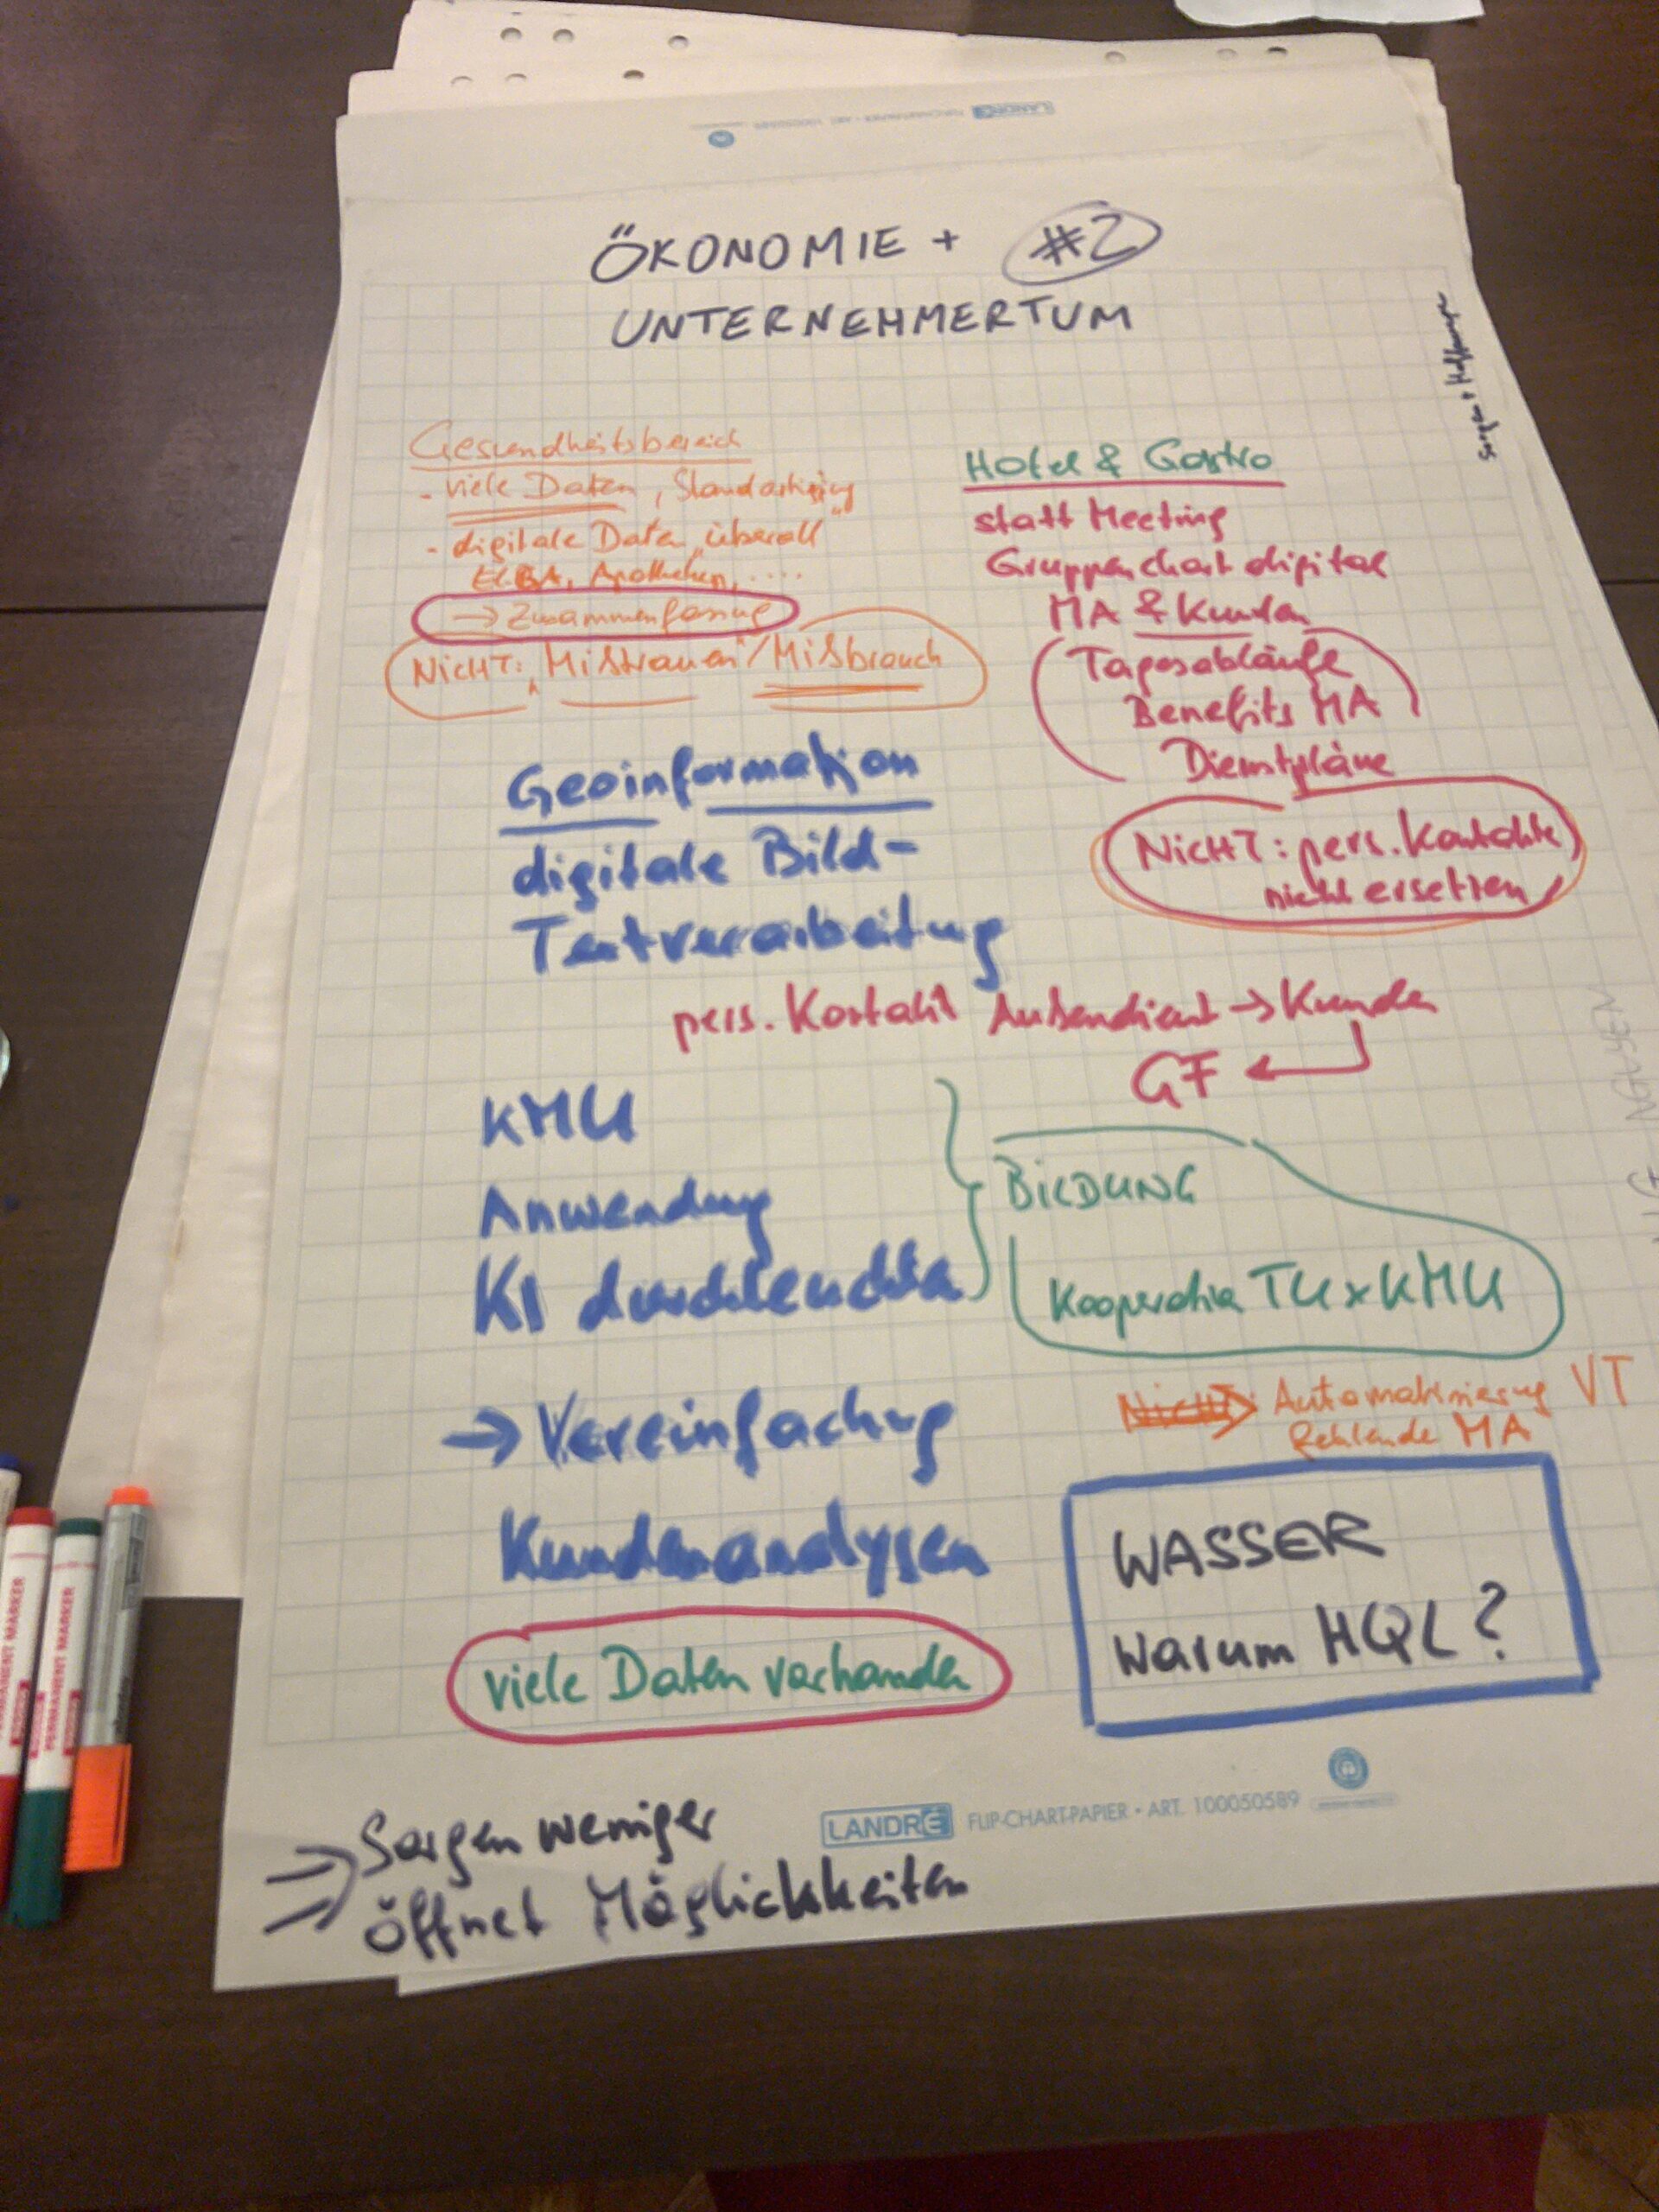 LANDRÉ
ÖKONOMIE + #2
UNTERNEHMERTUM
Sorgen + Hoffnungen
Gesundheitsbereich
- viele Daten, Standardisierung
- digitale Daten „überall"
ELGA, Apotheken, ....
→ Zusammenfassung
NICHT: „Mißtrauen"/Mißbrauch
Hotel & Gastro
statt Meeting
Gruppenchart digital
MA & Kunden
Tagesabläufe
Benefits MA
Dienstpläne
NICHT: pers. Kontakte
nicht ersetzen
Geoinformation
digitale Bild-
Textverarbeitung
pers. Kontakt Außendienst → Kunden
GF
KMU
Anwendung
KI durchleuchten
BILDUNG
Kooperation TU x KMU
→ Vereinfachung
Nicht Automatisierung VT
fehlende MA
Kundenanalysen
viele Daten vorhanden
WASSER
Warum HQL?
LANDRÉ FLIP-CHART-PAPIER • ART. 100050589
⇒ Sorgen weniger
öffnet Möglichkeiten
NGUYEN
PERMANENT MARKER
PERMANENT MARKER